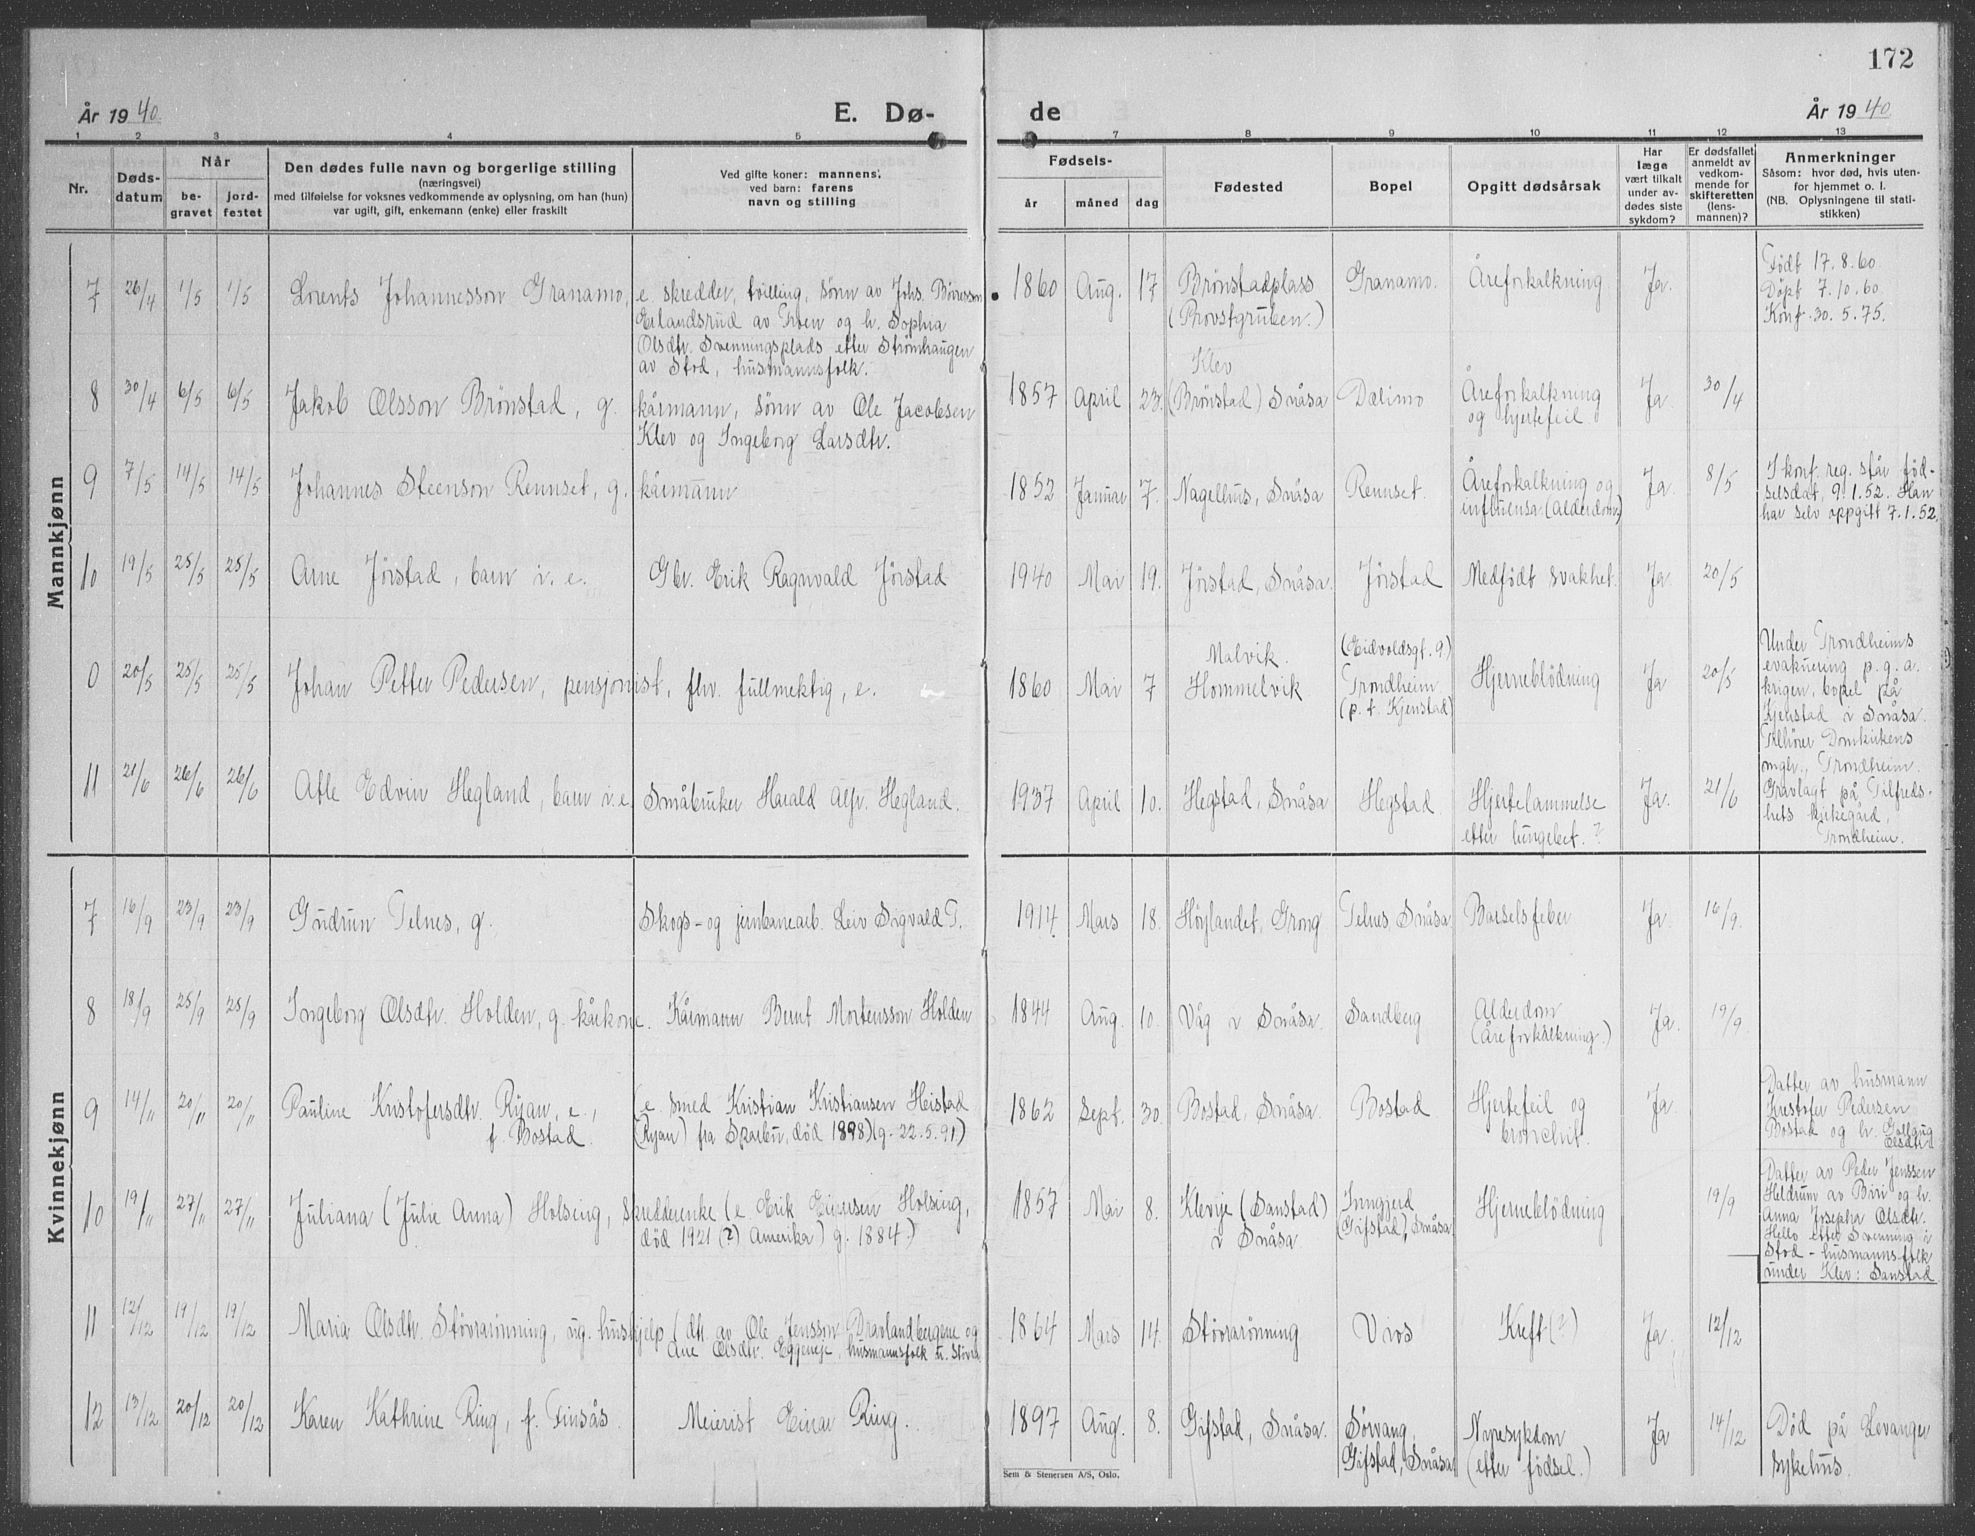 172
År 1940.
E. Dø-
de
År 1940
1 2 3 4 5 7 8 9 10 11 12 13
Nr.
Døds-
datum
Når
be-
gravet
jord-
festet
Den dødes fulle navn og borgerlige stilling
(næringsvei)
med tilføielse for voksnes vedkommende av oplysning, om han (hun)
var ugift, gift, enkemann (enke) eller fraskilt
Ved gifte koner: mannens,
ved barn: farens
navn og stilling
Fødsels-
år måned dag
Fødested
Bopel
Opgitt dødsårsak
Har
læge
vært tilkalt
under av-
dødes siste
sykdom?
Er dødsfallet
anmeldt av
vedkom-
mende for
skifteretten
(lens-
mannen)?
Anmerkninger
Såsom: hvor død, hvis uten-
for hjemmet o. l.
(NB. Oplysningene til stati-
stikken)
Mannkjønn
7 26/4 1/5 1/5 Lorents Johannesson Granamo, e. skredder, tvilling, sønn av Johs. Børresson
Erlandsrud av Troen og h. Sophia
Olsdtr. Svenningsplads etter Strømhaugen
av Stod, husmannsfolk.
1860 Aug. 17 Brønstadplass
(Provstgruben.)
Granamo. Åreforkalkning Ja.
Født 17.8.60.
Døpt 7.10.60.
Konf. 30.5.75.
8 30/4 6/5 6/5 Jakob Olsson Brønstad, g. kårmann, sønn av Ole Jacobsen
Klev og Ingeborg Larsdtr.
1857 April 23. Klev
(Brønstad) Snåsa Dalimo Åreforkalkning
og hjertefeil Ja 30/4
9 7/5 14/5 14/5 Johannes Steenson Rennset, g. kårmann
1852 Januar 7. Nagelhus, Snåsa Rennset. Åreforkalkning og
influensa (alderdom) Ja 8/5
I konf. reg. står fød-
selsdat. 9.1.52. Han
har selv oppgitt 7.1.52.
10 19/5 25/5 25/5 Arne Jørstad, barn i. e. Gbr. Erik Ragnvald Jørstad
1940 Mai 19. Jørstad, Snåsa. Jørstad Medfødt svakhet. Ja 20/5
0 20/5 25/5 25/5 Johan Petter Pedersen, pensjonist, fhv. fullmektig, e.
1860 Mai 7 Malvik.
Hommelvik
(Eidvoldsgt. 9)
Trondheim
(p. t. Kjenstad)
Hjerneblödning Ja 20/5
Under Trondheims
evakuering p. g. a.
krigen, bopel på
Kjenstad i Snåsa.
Tilhører Domkirkens
mgh., Trondheim.
Gravlagt på Tilfreds-
hets kirkegård,
Trondheim.
11 21/6 26/6 26/6 Atle Edvin Hegland, barn i. e. Småbruker Harald Alfr. Hegland.
1937 April 10. Hegstad, Snåsa Hegstad. Hjertelammelse
etter lungebet. ? Ja. 21/6
Kvinnekjønn
7 16/9 23/9 23/9 Gudrun Telnes, g. Skogs- og jernbanearb. Leiv Sigvald T.
1914 Mars 18. Höylandet, Grong Telnes, Snåsa Barselsfeber Ja 16/9.
8 18/9 25/9 25/9 Ingeborg Olsdtr. Holden, g. kårkone. Kårmann Bernt Mortensson Holden
1844 Aug. 10. Våg i Snåsa. Sandberg Alderdom
(Åreforkalkning.) Ja. 19/9.
9 14/11 20/11 20/11 Pauline Kristofersdtr. Ryan, e.,
f. Bostad.
(e. smed Kristian Kristiansen Heistad
(Ryan) fra Sparbu, død 1898)(g. 22.5.91)
1862 Sept. 30. Bostad, Snåsa. Bostad Hjertefeil og
bronchit. Ja.
Datter av husmann
Kristofer Pedersen
Bostad og h. Gollaug
Olsdtr.
10 19/11 27/11 27/11 Juliana (Julie Anna) Holsing, skredderenke (e. Erik Einersen Holsing,
død 1921 (?) Amerika) g. 1884.)
1857 Mai 8. Klevje (Sanstad)
i Snåsa
Inngjerd
(Gifstad), Snåsa
Hjerneblödning 19/9
Datter av Peder Jenssen
Heldrum av Biri og h.
Anna Josepha Olsdtr.
Hello etter Svenning i
Stod - husmannsfolk
under Klev: Sanstad
11 12/12 19/12 19/12 Maria Olsdtr. Stövrarönning, ug. hushjelp (dtr. av Ole Jensson Dravlandbergene og
Ane Olsdtr. Eggeneje, husmannsfolk u. Stövra
1864 Mars 14. Stövrarönning Vios Kreft (?) Ja. 12/12
12 13/12 20/12 20/12 Karen Kathrine Ring, f. Finsås. Meierist Einar Ring.
1897 Aug. 8. Gifstad, Snåsa. Sörvang,
Gifstad, Snåsa
Nyresykdom
(etter födsel.) Ja 14/12
Død på Levanger
sykehus.
Sem & Stenersen A/S, Oslo.